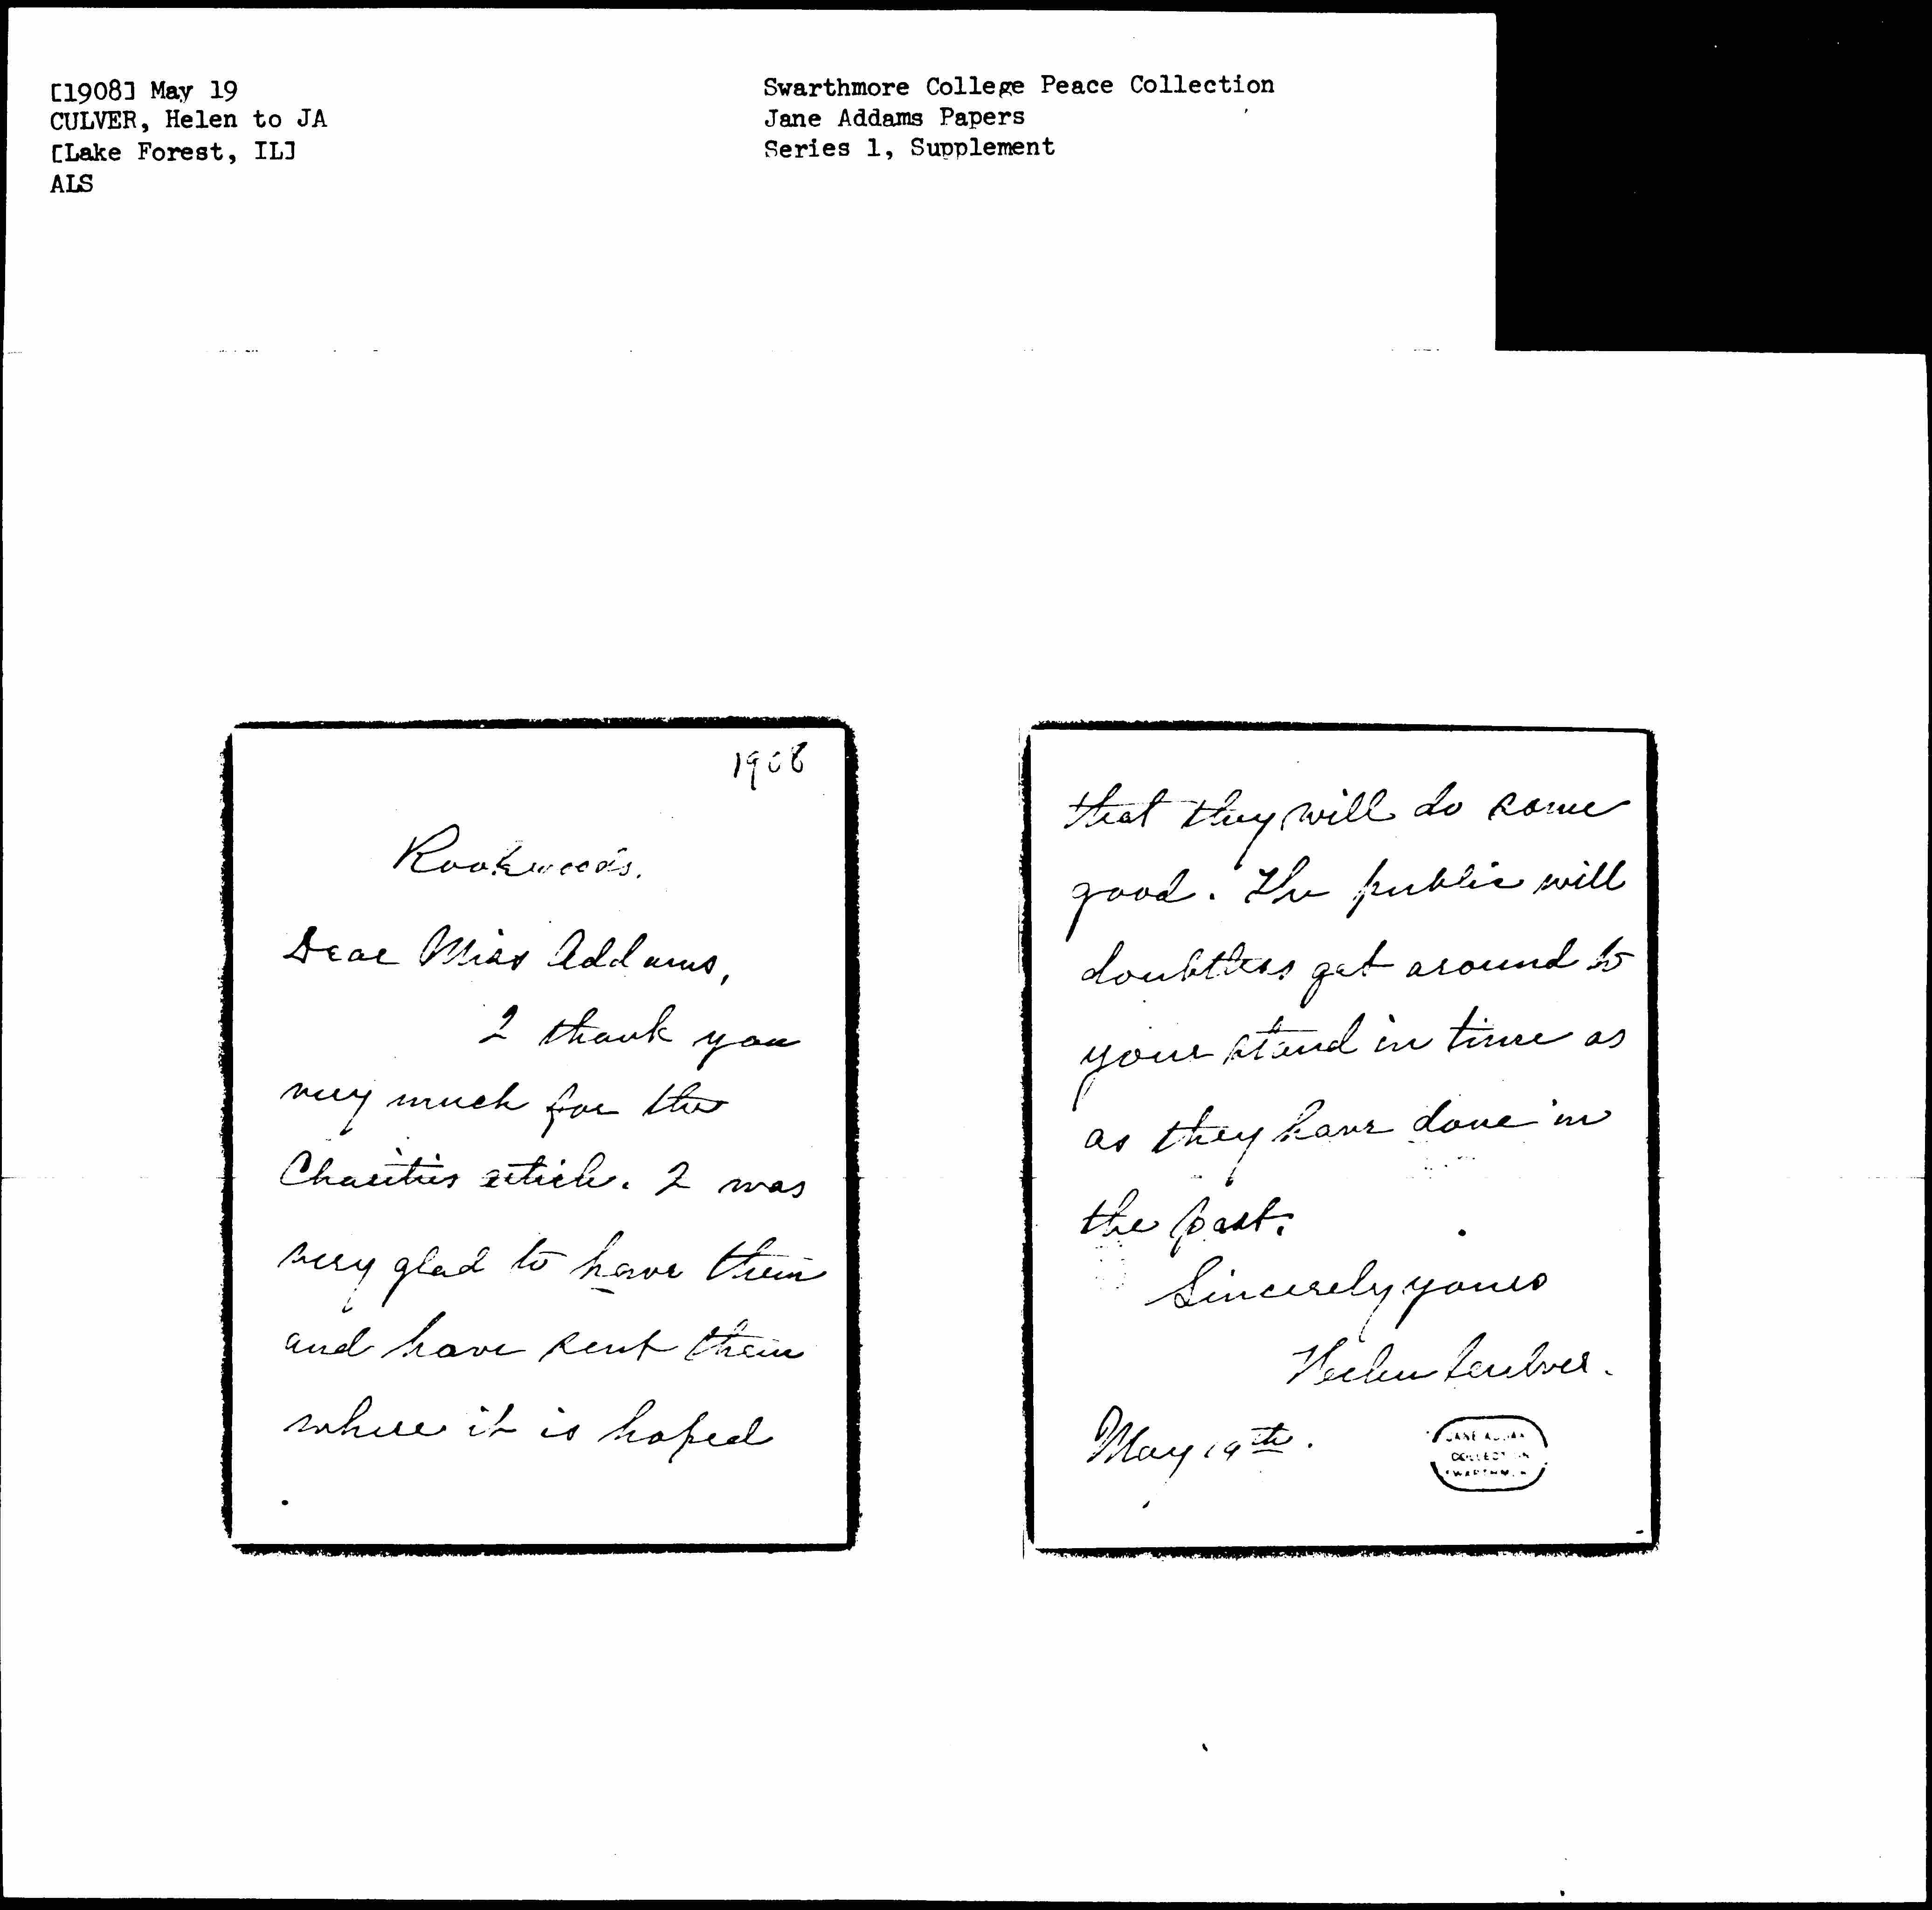 [1908] May 19
CULVER, Helen to JA
[Lake Forest, IL]
ALS
Swarthmore College Peace Collection
Jane Addams Papers
Series 1, Supplement
1908
Rookwoods.
Dear Miss Addams,
I thank you
very much for the
Charities article. I was
very glad to have them
and have sent them
where it is hoped
that they will do some
good. The public will
doubtless get around to
your stand in time as
as they have done in
the past.
Sincerely yours
Helen Culver.
May 19th.
JANE
COLLECTION